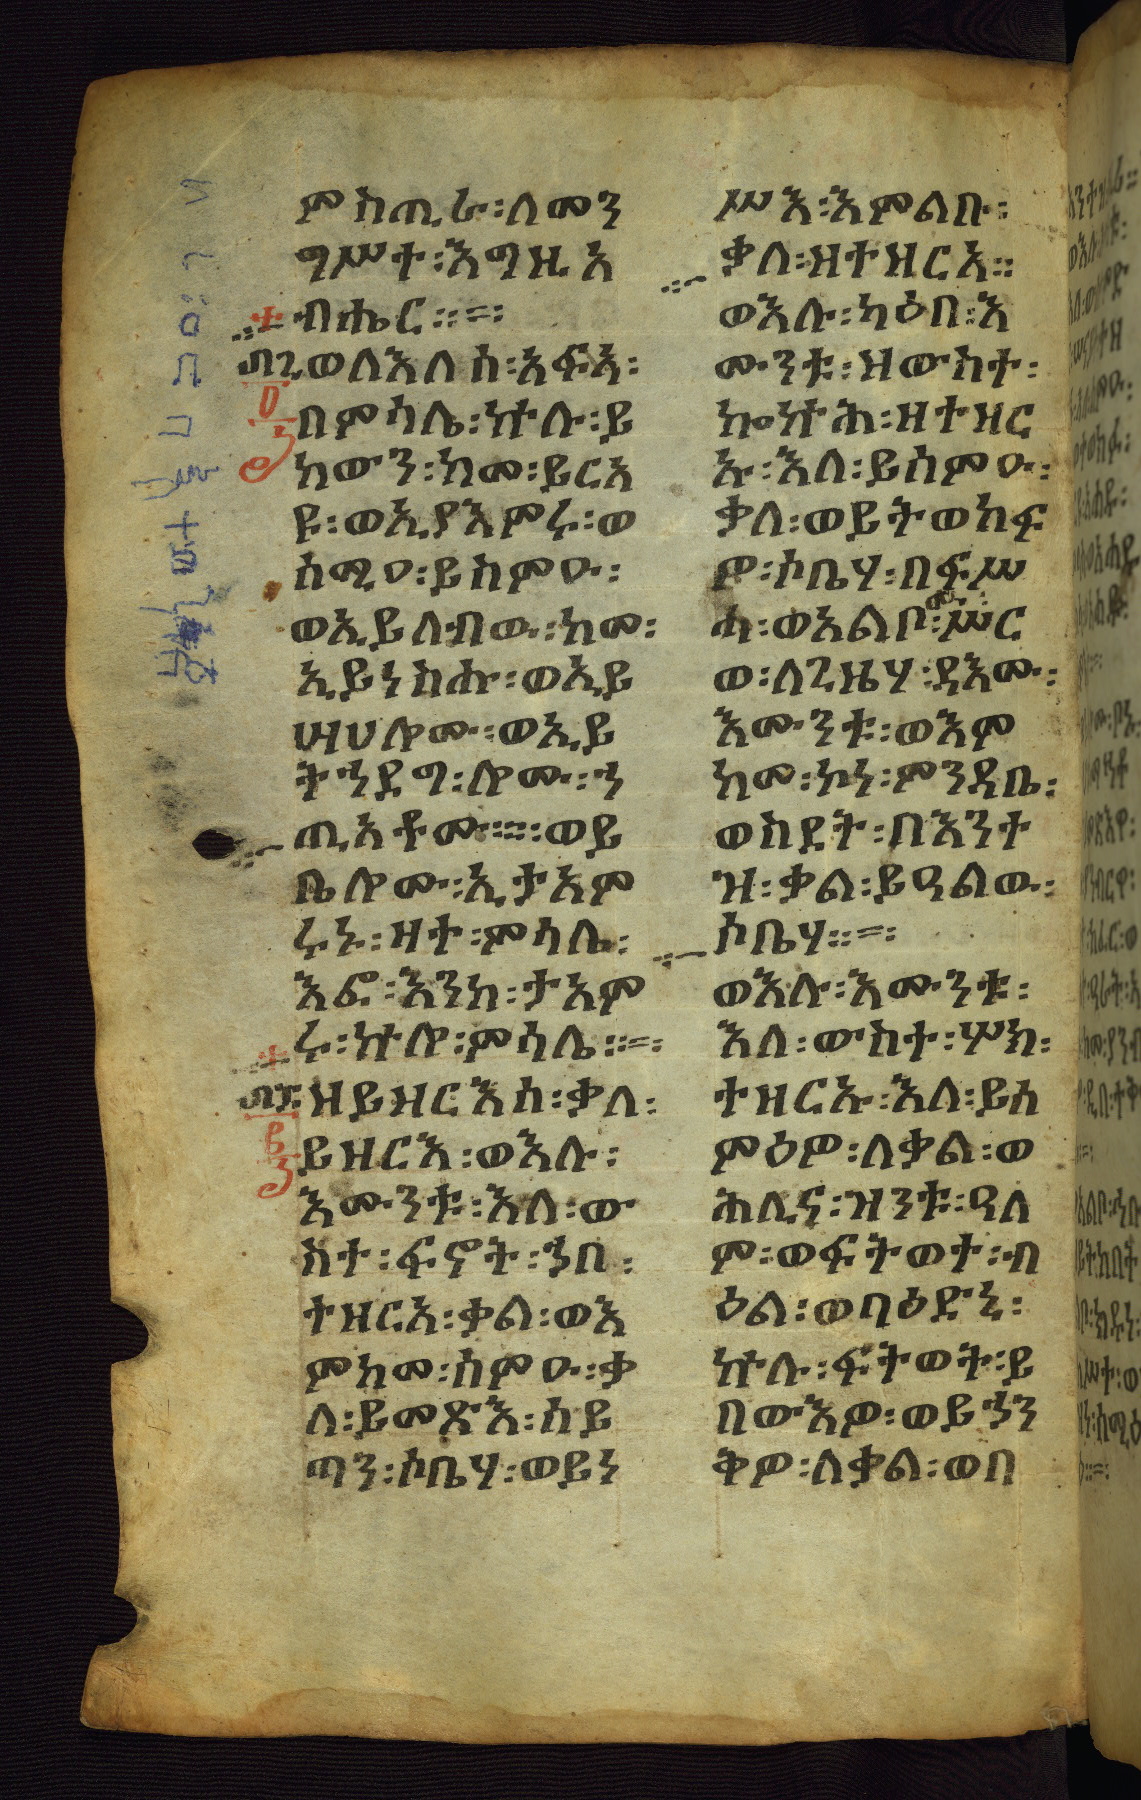 ምስጢራ፡ለመን
ግሥተ፡እግዚአ
ብሔር።=፡
ወለእለሰ፡አፍአ፡
በምሳሌ፡ኵሉ፡ይ
ከውን፡ከመ፡ይርአ
ዩ፡ወኢያእምሩ፡ወ
ሰሚዐ፡ይስምዑ፡
ወኢይለብዉ፡ከመ፡
ኢይነስሑ፡ወኢይ
ሣሀሎሙ፡ወኢይ
ትኀደግ፡ሎሙ፡ኀ
ጢአቶሙ።=፡ወይ
ቤሎሙ፡ኢታአም
ሩኑ፡ዛተ፡ምሳሌ፡
እፎ፡እንከ፡ታአም
ሩ፡ኵሎ፡ምሳሌ።=፡
ዘይዘርእሰ፡ቃለ፡
ይዘርእ፡ወእሉ፡
እሙንቱ፡እለ፡ው
ስተ፡ፍኖት፡ኀበ፡
ተዘርአ፡ቃል፡ወእ
ምከመ፡ሰምዑ፡ቃ
ለ፡ይመጽእ፡ሰይ
ጣን፡ሶቤሃ፡ወይነ
ሥእ፡እምልቡ፡
ቃለ፡ዘተዘርአ።
ወእሉ፡ካዕበ፡እ
ሙንቱ፡ዘውስተ፡
ኰኵሕ፡ዘተዘር
ኡ፡እለ፡ይሰምዑ፡
ቃለ፡ወይትወከፍ
ዎ፡ሶቤሃ፡በፍሥ
ሓ፡ወአልቦሙ፡ሥር
ወ፡ለጊዜሃ፡ዳእሙ፡
እሙንቱ፡ወእም
ከመ፡ኮነ፡ምንዳቤ፡
ወስደት፡በእንተ
ዝ፡ቃል፡ይዔልዉ፡
ሶቤሃ።=፡
ወእሉ፡እሙንቱ፡
እለ፡ውስተ፡ሦክ፡
ተዘርኡ፡እለ፡ይሰ
ምዕዎ፡ለቃል፡ወ
ሕሊና፡ዝንቱ፡ዓለ
ም፡ወፍትወተ፡ብ
ዕል፡ወባዕድኒ፡
ኵሉ፡ፍትወት፡ይ
በውእዎ፡ወይኀን
ቅዎ፡ለቃል፡ወበ